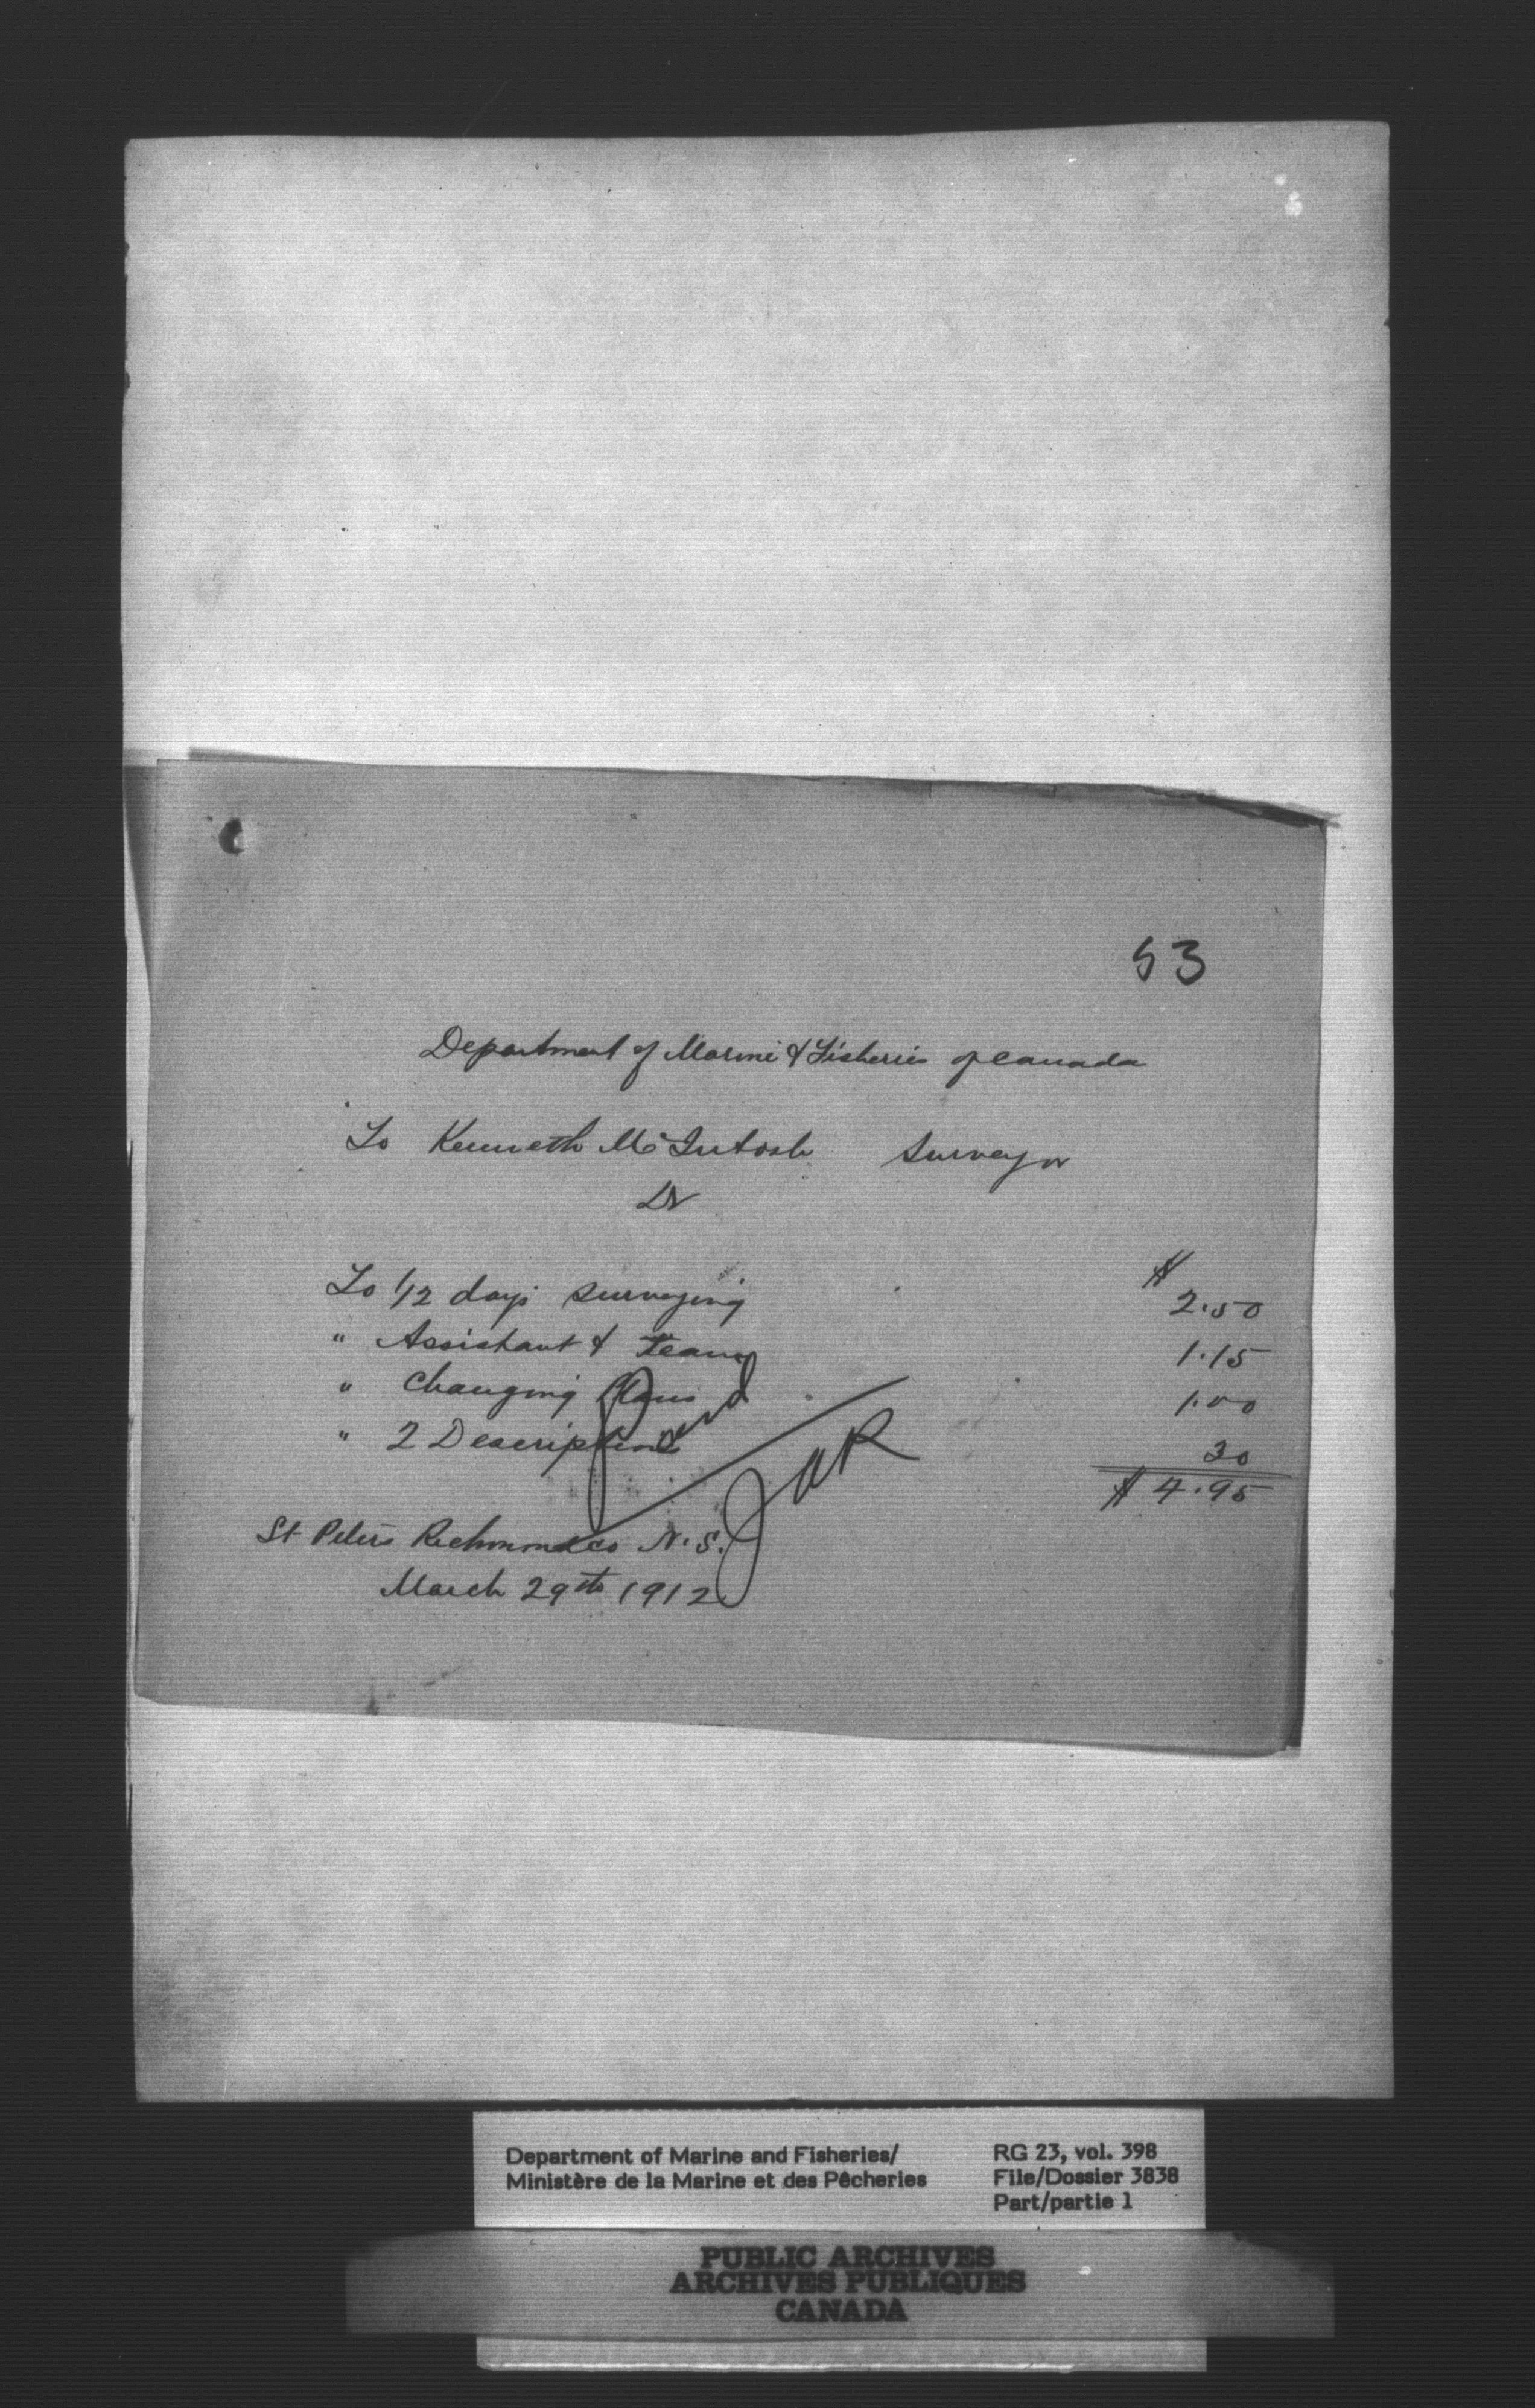 53
Department of Marine & Fisheries of Canada
To Kenneth McIntosh Surveyor
Dr
$
To 1/2 days surveying 2.50
" Assistant & team 1.15
" Changing Plans 1.00
" 2 Descriptions 30
$ 4.95
Paid
JAR
St Peters Richmond Co N.S.
March 29th 1912
Department of Marine and Fisheries/
Ministère de la Marine et des Pêcheries
RG 23, vol. 398
File/Dossier 3838
Part/partie 1
PUBLIC ARCHIVES
ARCHIVES PUBLIQUES
CANADA